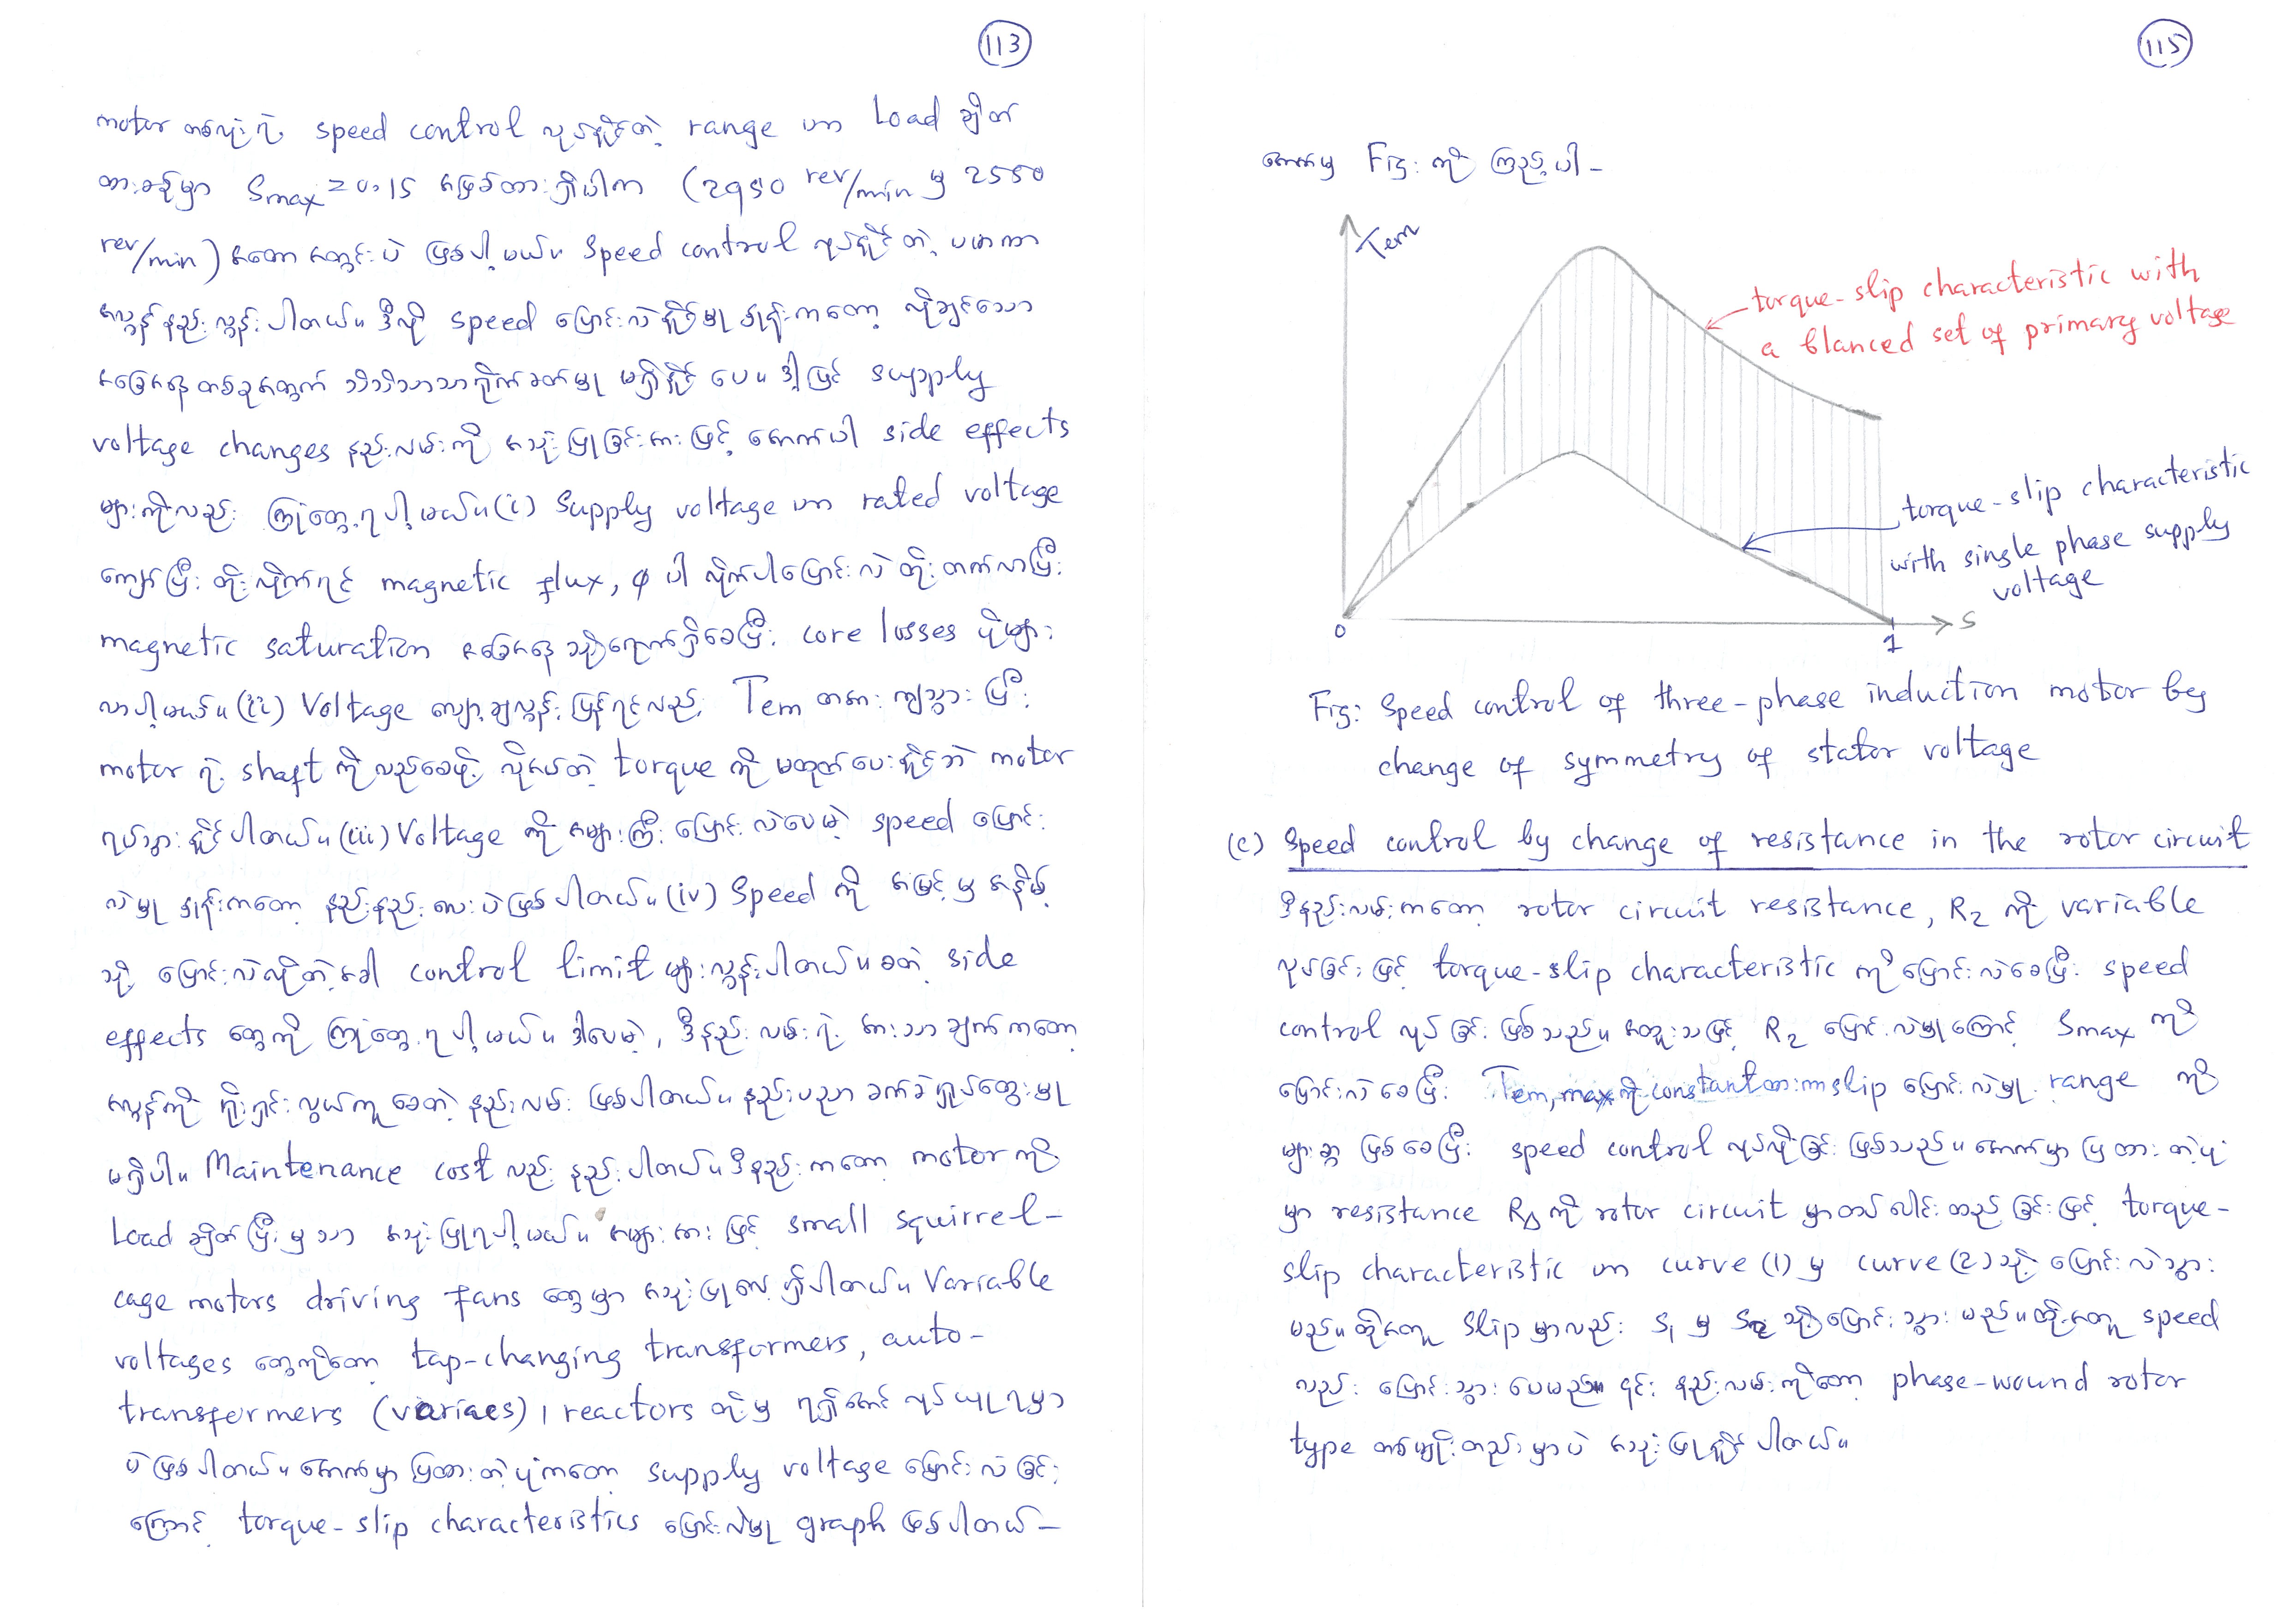 113
motor တစ်လုံးရဲ့ speed control လုပ်နိုင်တဲ့ range ဟာ Load ချိတ်
ထားခန့်မှာ Smax = 0.15 အဖြစ်ထားရှိပါက (2950 rev/min မှ 2550
rev/min) အတော အတွင်းပဲ ဖြစ်ပါ့မယ်။ Speed control လုပ်နိုင်တဲ့ ပမာဏ
အလွန်နည်းလွန်းပါတယ်။ ဒီလို speed ပြောင်းလဲနိုင်မှုနှုန်းကတော့ လိုချင်သော
အခြေအနေတစ်ခုအတွက် သိသိသာသာရိုက်ခတ်မှု မရှိနိုင်ပေ။ ဒါ့ပြင် supply
voltage changes နည်းလမ်းကို အသုံးပြုခြင်းအားဖြင့် အောက်ပါ side effects
များကိုလည်း ကြုံတွေ့ရပါ့မယ်။ (i) Supply voltage ဟာ rated voltage
ကျော်ပြီး တိုးလိုက်ရင် magnetic flux, φ ပါ လိုက်ပါပြောင်းလဲတိုးတက်လာပြီး
magnetic saturation အခြေအနေသို့ရောက်ရှိစေပြီး core losses ပိုများ
လာပါ့မယ်။ (ii) Voltage လျော့ချလွန်းပြန်ရင်လည်း Tem တအားကျသွားပြီး
motor ရဲ့ shaft ကိုလည်စေဖို့ လိုအပ်တဲ့ torque ကို မထုတ်ပေးနိုင်ဘဲ motor
ရပ်သွားနိုင်ပါတယ်။ (iii) Voltage ကို အများကြီးပြောင်းလဲပေမဲ့ speed ပြောင်း
လဲမှုနှုန်းကတော့ နည်းနည်းလေးပဲဖြစ်ပါတယ်။ (iv) Speed ကို အမြင့်မှ အနိမ့်
သို့ ပြောင်းလဲလိုတဲ့အခါ control limit များလွန်းပါတယ်။ စတဲ့ side
effects တွေကို ကြုံတွေ့ရပါ့မယ်။ ဒါပေမဲ့, ဒီနည်းလမ်းရဲ့ အားသာချက်ကတော့
အလွန်ကို ရိုးရှင်းလွယ်ကူစေတဲ့ နည်းလမ်းဖြစ်ပါတယ်။ နည်းပညာခက်ခဲရှုပ်ထွေးမှု
မရှိပါ။ Maintenance cost လည်း နည်းပါတယ်။ ဒီနည်းကတော့ motor ကို
Load ချိတ်ပြီးမှသာ အသုံးပြုရပါ့မယ်။ အများအားဖြင့် small squirrel-
cage motors driving fans တွေမှာ အသုံးပြုလေ့ရှိပါတယ်။ Variable
voltages တွေကိုတော့ tap-changing transformers, auto-
transformers (variacs), reactors တို့မှ ရရှိအောင် လုပ်ယူရမှာ
ပဲဖြစ်ပါတယ်။ အောက်မှာ ပြထားတဲ့ပုံကတော့ supply voltage ပြောင်းလဲခြင်း
ကြောင့် torque-slip characteristics ပြောင်းလဲမှု graph ဖြစ်ပါတယ်-
115
အောက်မှ Fig: ကို ကြည့်ပါ-
Tem
torque-slip characteristic with
a blanced set of primary voltage
torque-slip characteristic
with single phase supply
voltage
0
1
S
Fig: Speed control of three-phase induction motor by
change of symmetry of stator voltage
(c) Speed control by change of resistance in the rotor circuit
ဒီနည်းလမ်းကတော့ rotor circuit resistance, R2 ကို variable
လုပ်ခြင်းဖြင့် torque-slip characteristic ကိုပြောင်းလဲစေပြီး speed
control လုပ်ခြင်းဖြစ်သည်။ အထူးသဖြင့် R2 ပြောင်းလဲမှုကြောင့် Smax ကို
ပြောင်းလဲစေပြီး Tem,max ကို constant ထားကာ slip ပြောင်းလဲမှု range ကို
များစွာဖြစ်စေပြီး speed control လုပ်လိုခြင်းဖြစ်သည်။ အောက်မှာပြထားတဲ့ပုံ
မှာ resistance RΔ ကို rotor circuit မှာတပ်ပေါင်းထည့်ခြင်းဖြင့် torque-
slip characteristic ဟာ curve (1) မှ curve (2) သို့ ပြောင်းလဲသွား
မည်။ ထို့အတူ Slip မှာလည်း S1 မှ S2 သို့ပြောင်းသွားမည်။ ထို့အတူ speed
လည်းပြောင်းသွားပေမည်။ ၎င်းနည်းလမ်းကိုတော့ phase-wound rotor
type တစ်မျိုးတည်းမှာပဲ အသုံးပြုနိုင်ပါတယ်။